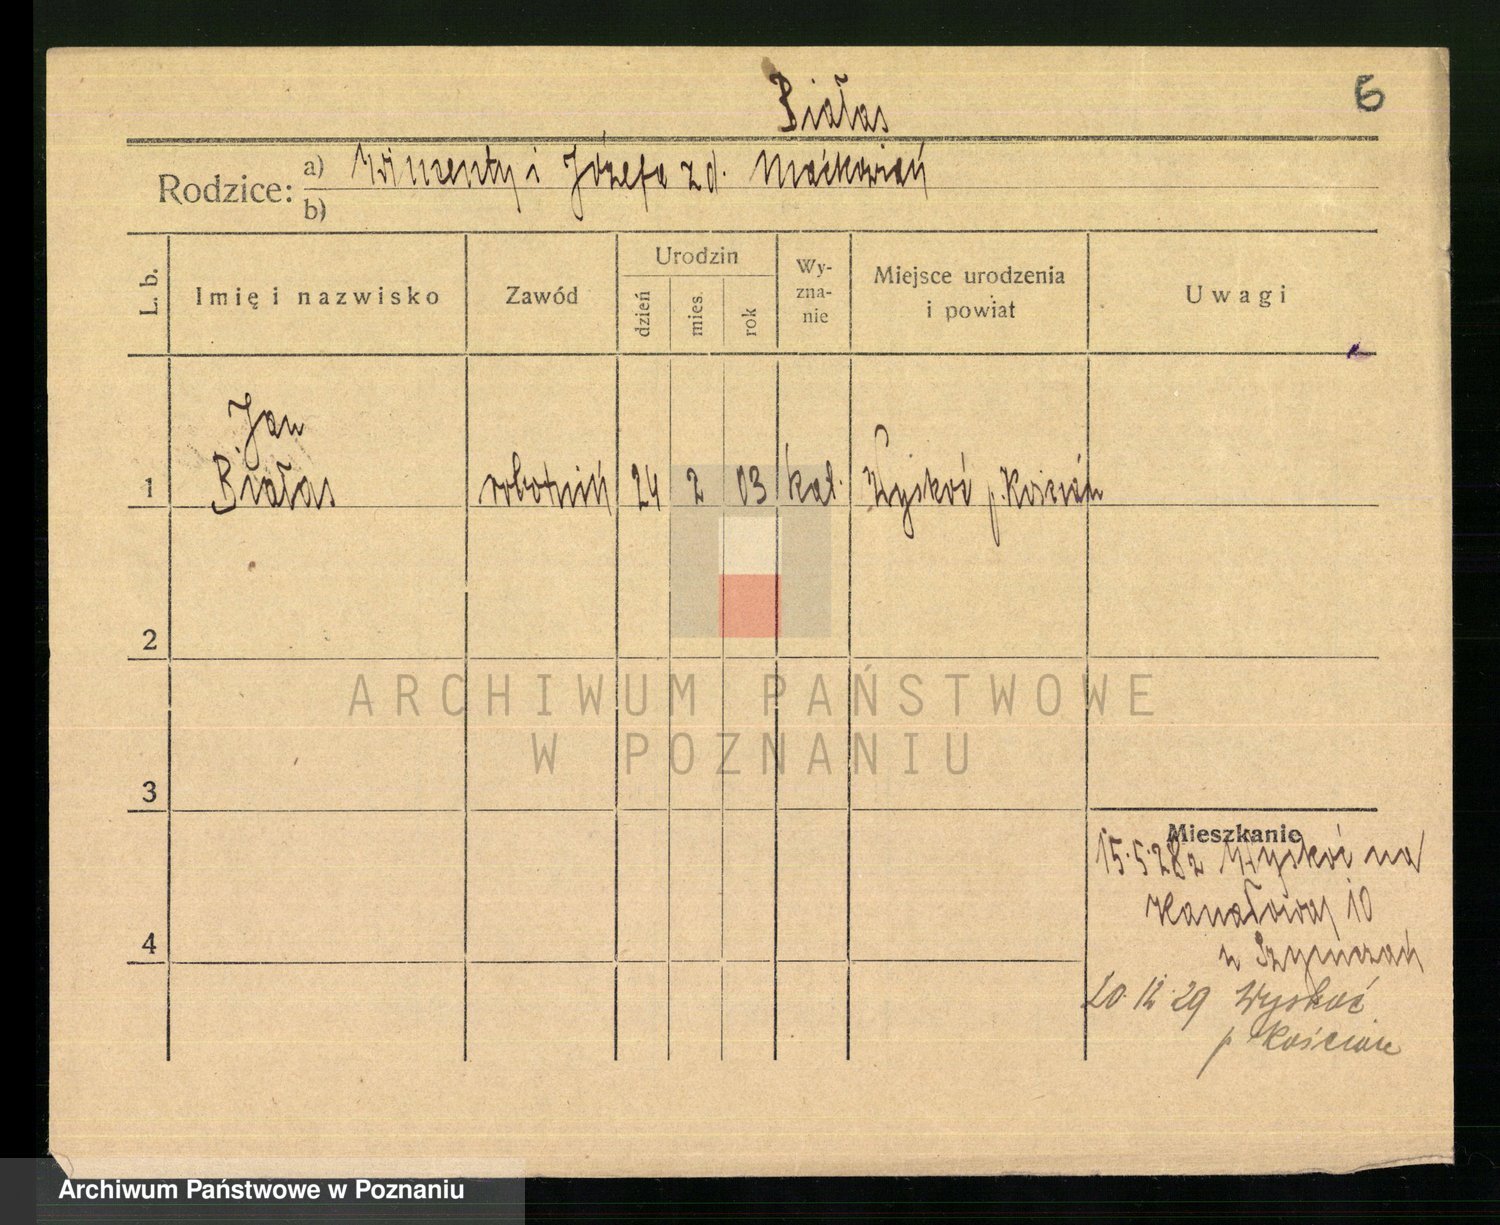 6
Białas
Rodzice: a) Wincenty i Józefa z d. Maćkowiak
b)
L. b. Imię i nazwisko Zawód Urodzin dzień mies. rok Wy-zna-nie Miejsce urodzenia i powiat Uwagi
Jan
1 Białas robotnik 24 2 03 kat. Wyskoć p. Kościan
2
ARCHIWUM PAŃSTWOWE
W POZNANIU
3
Mieszkanie
15.5.28 z Wyskoć na
Kanałowa 10
4
u Szymczak
20.12.29 Wyskoć
p. Kościan
Archiwum Państwowe w Poznaniu